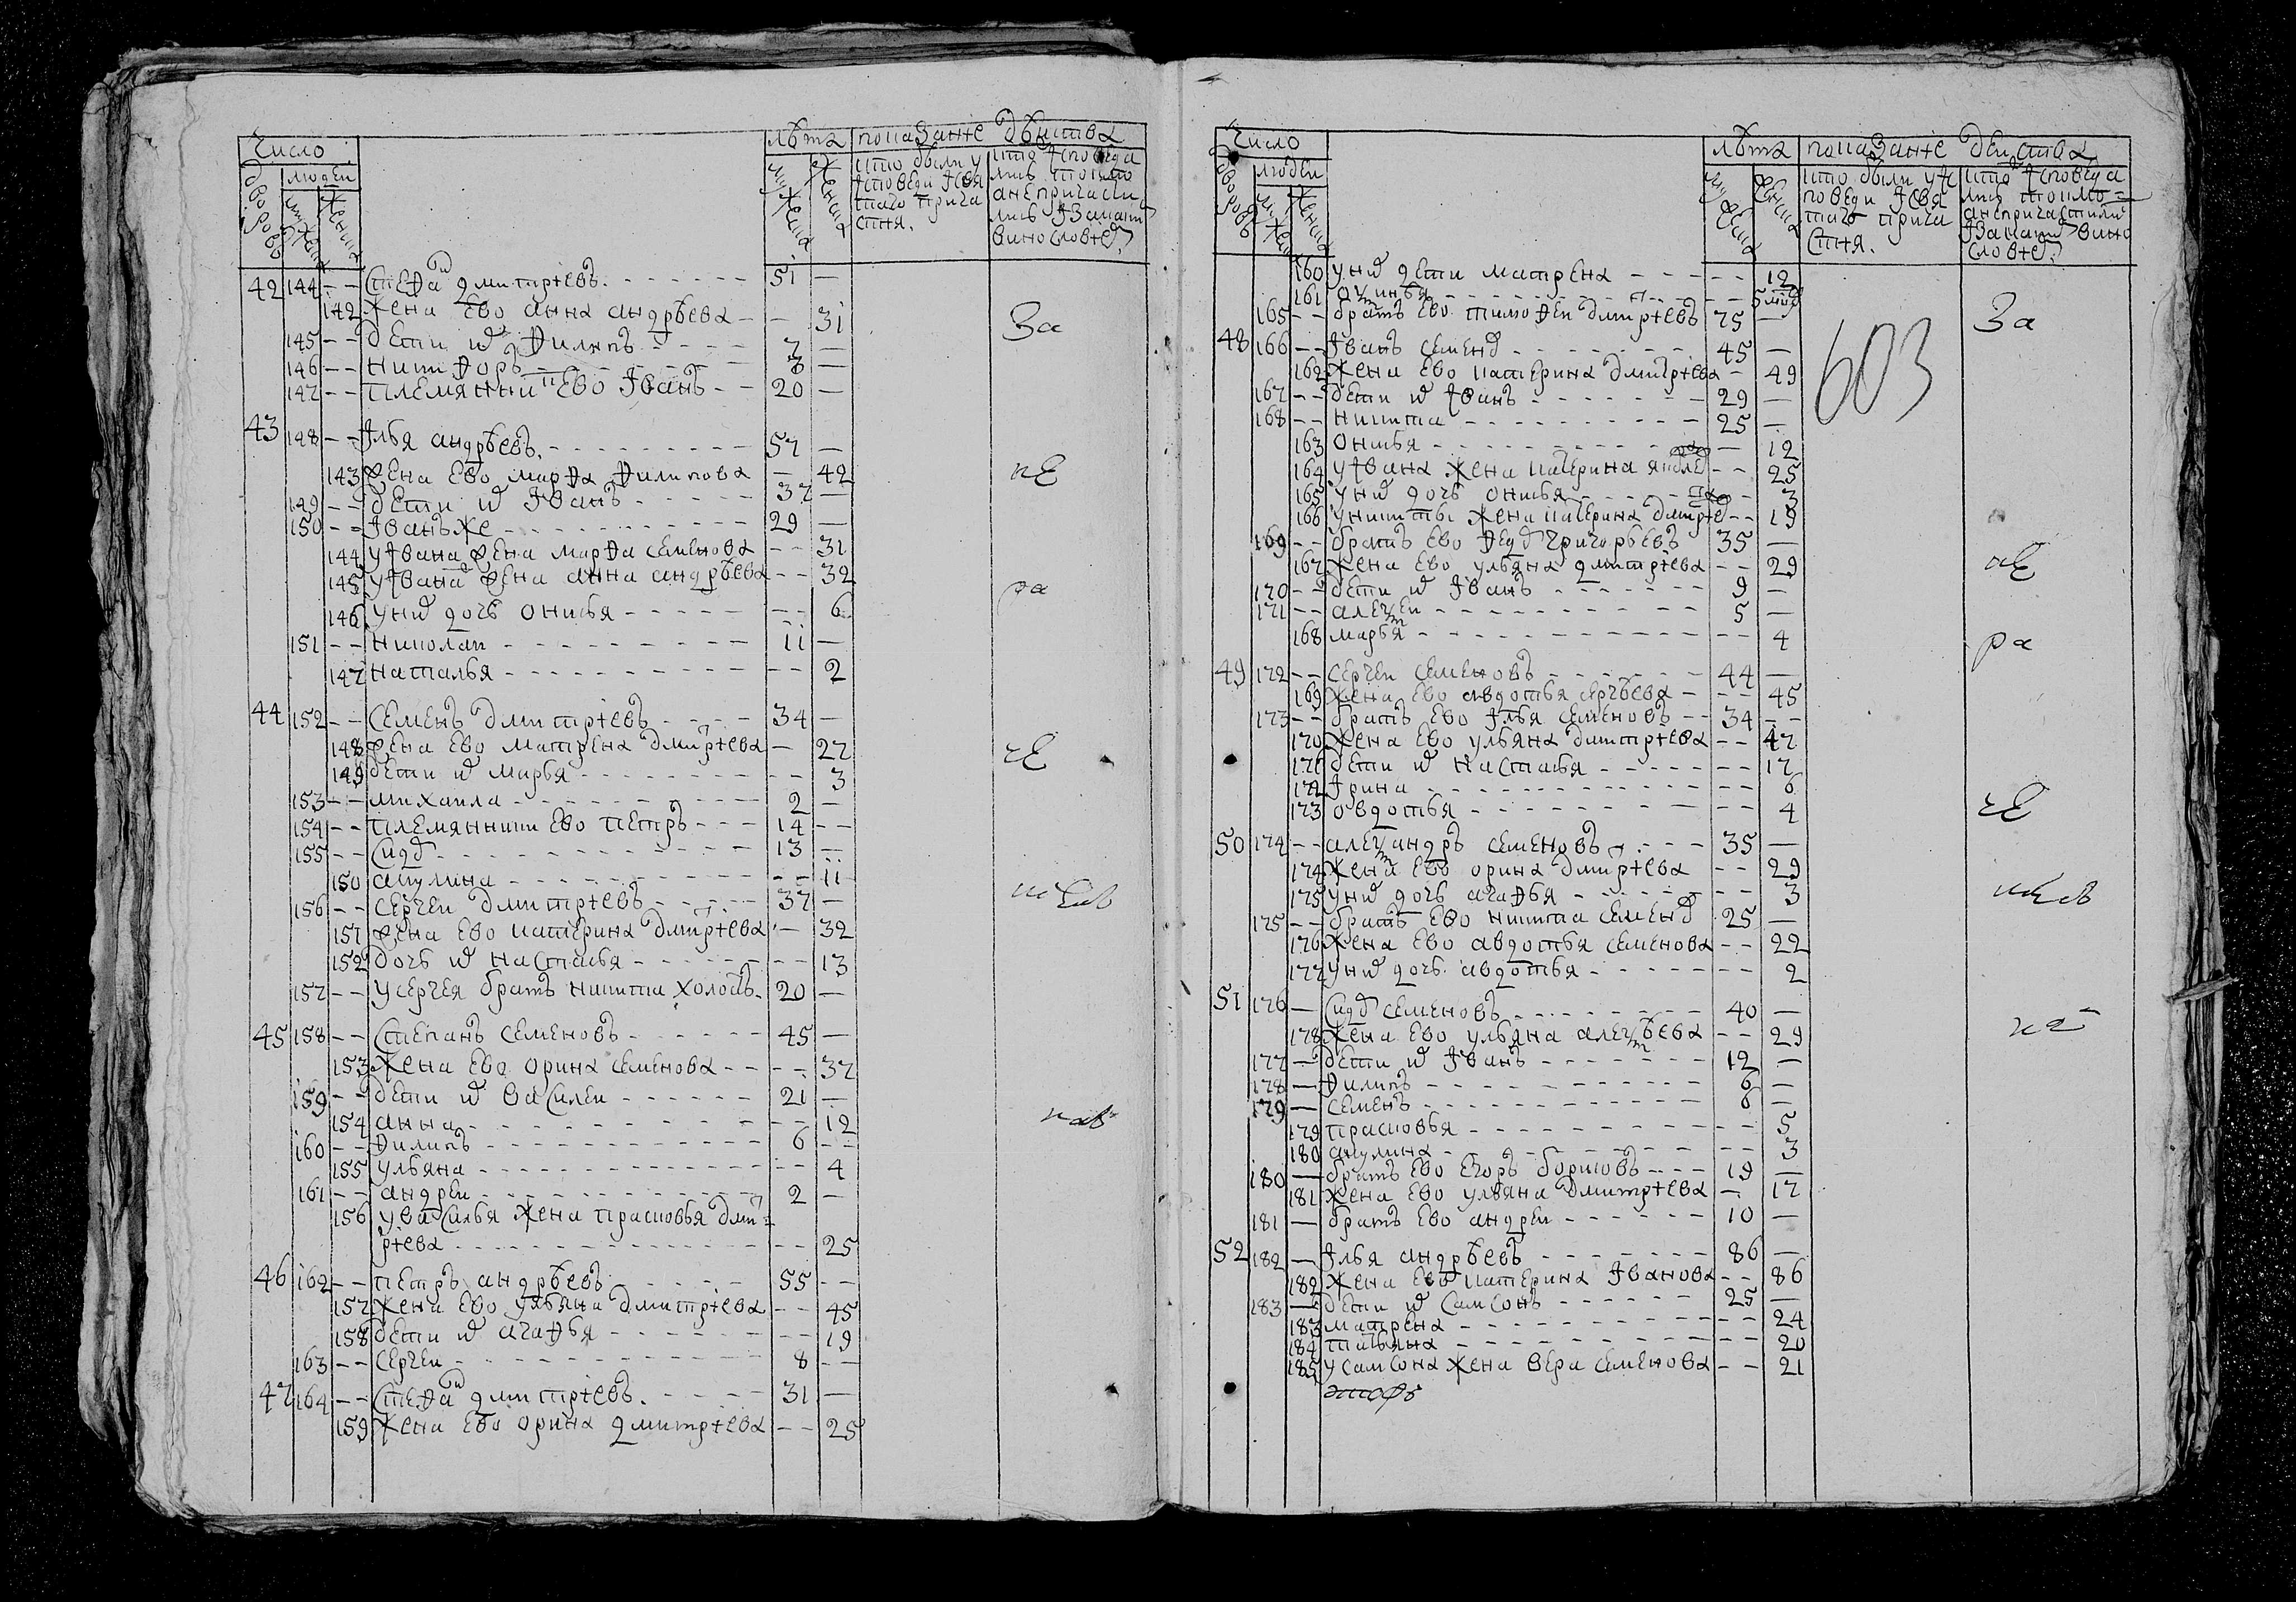 Число
лѣта показанiе дѣиства
дворовъ
людеи
мужеска
женска
мужеска
женска
кто были у
iсповеди iсвя
таго прича
стия.
кто iсповеда
лись токмо
анепричасти
лись iзакаким
винословiем
42 144 -- Стефан дмитрiевъ. 51 —
142 жена ево анна андрѣева -- 31
За
145 -- дети их Филипъ 7 —
146 -- никифоръ 3 —
147 -- племянник ево iванъ -- 20 —
43 148 -- Iлья андрѣевъ. 57 —
143 жена ево марфа филипова — 42
пе
149 -- дети их Iванъ 37 —
150 -- Iванъже 29 —
144 уiвана жена марфа семенова -- 31
145 уiвана жена анна андрѣева -- 32
ра
146 уних дочь онисья -- 6
151 -- николаи 11 —
147 наталья -- 2
44 152 -- Семенъ дмитрiевъ 34 —
148 жена ево матрена дмитрiева — 27
че
149 дети их марья -- 3
153 -- михаила 2 —
154 -- племянники ево петръ 14 --
155 -- Сидор 13 —
150 акулина -- 11
156 -- Сергеи дмитрiевъ 37 —
151 жена ево катерина дмитрiева — 32
152 дочь их настасья -- 13
157 -- усергея братъ никита холостъ. 20 —
45 158 -- Степанъ семеновъ 45 —
153 жена ево орина семенова -- 37
159 -- дети их василеи 21 —
154 анна -- 12
160 -- Филипъ 6 --
155 ульяна -- 4
161 -- андреи 2 —
156 увасилья жена прасковья дми=
трiева -- 25
46 162 -- петръ андрѣевъ 55 --
157 жена ево ульяна дмитрiева -- 45
158 дети их агафья -- 19
163 -- Сергеи 8 --
47 164 -- Стефан дмитрiевъ. 31 —
159 жена ево орина дмитрiева -- 25
Число
лѣта показанiе деиства
дворовъ
людеи
мужеска
женска
мужеска
женска
кто были уiс
поведи iсвя
таго прича
стия.
кто iсповеда
лись токмо=
анепричастили
iзаким вино
словiем
160 уних дети матрена -- 12
161 --
За
165 -- братъ ево тимофеи дмитрiевъ 25 —
603
48 166 -- Iванъ семенов 45 —
162 жена ево катерина дмитрiева - 49
167 -- дети их iванъ 29 —
168 -- никита 25 —
163 онисья — 12
164 уiвана жена катерина яковле -- 25
165 уних дочь онисья - 3
166 уникиты жена катерина дмитрiев -- 19
169 -- братъ ево Федор григорьевъ 35 —
167 жена ево ульяна дмитрiева -- 29
пе
170 -- дети их Iванъ 9 —
171 -- алексеи 5 —
168 марья -- 4
ра
49 172 -- Сергеи семеновъ 44 —
169 жена ево авдотья сергѣева -- 45
173 -- братъ ево Iлья семеновъ 34 --
170 жена ево ульяна дмитрiева -- 47
171 дети их настасья -- 17
172 Iрина -- 6
173 овдотья -- 4
че
50 174 -- александръ семеновъ 35 —
174 жена ево орина дмитрiева -- 29
175 уних дочь агафья -- 3
175 -- братъ ево никита семенов 25 —
176 жена ево авдотья семенова -- 22
177 уних дочь авдотья -- 2
51 176 — Сидор семеновъ 40 —
178 жена ево ульяна алексѣева -- 29
177 — дети их Iванъ 12 —
178 — Филипъ 6 —
179 — семенъ 6 —
179 прасковья -- 5
180 акулина -- 3
180 — братъ ево егоръ борисовъ 19 —
181 жена ево ульяна дмитрiева — 17
181 — братъ ево андреи 10 —
52 182 — Iлья андрѣевъ 86 —
182 жена ево катерина Iванова -- 86
183 — дети их самсонъ 25 —
183 матрена -- 24
184 татьяна -- 20
185 усамсона жена вера семенова -- 21